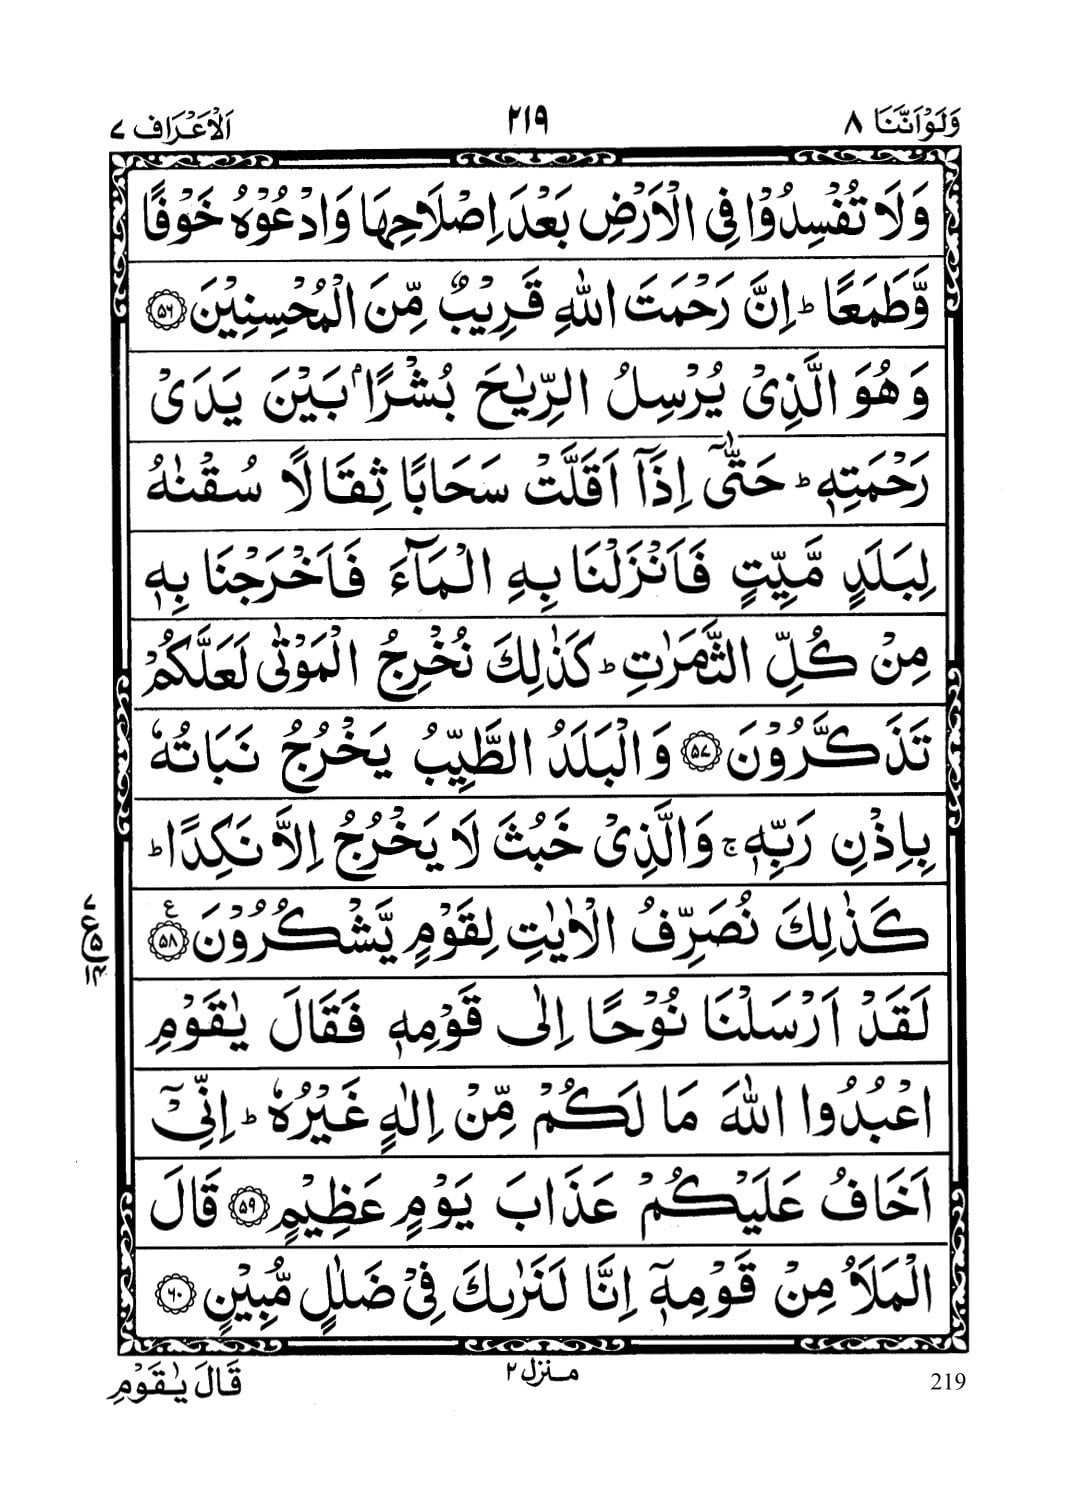 وَلَوْاَنَّنَا ۸
۲۱۹
اَلْاَعْرَاف ۷
وَلَا تُفْسِدُوْا فِى الْاَرْضِ بَعْدَ اِصْلَاحِهَا وَادْعُوْهُ خَوْفًا
وَّطَمَعًا ؕ اِنَّ رَحْمَتَ اللّٰهِ قَرِيْبٌ مِّنَ الْمُحْسِنِيْنَ ۝۵۶
وَهُوَ الَّذِىْ يُرْسِلُ الرِّيٰحَ بُشْرًۢا بَيْنَ يَدَىْ
رَحْمَتِهٖ ؕ حَتّٰٓى اِذَاۤ اَقَلَّتْ سَحَابًا ثِقَالًا سُقْنٰهُ
لِبَلَدٍ مَّيِّتٍ فَاَنْزَلْنَا بِهِ الْمَآءَ فَاَخْرَجْنَا بِهٖ
مِنْ كُلِّ الثَّمَرٰتِ ؕ كَذٰلِكَ نُخْرِجُ الْمَوْتٰى لَعَلَّكُمْ
تَذَكَّرُوْنَ ۝۵۷ وَالْبَلَدُ الطَّيِّبُ يَخْرُجُ نَبَاتُهٗ
بِاِذْنِ رَبِّهٖ ۚ وَالَّذِىْ خَبُثَ لَا يَخْرُجُ اِلَّا نَكِدًا ؕ
كَذٰلِكَ نُصَرِّفُ الْاٰيٰتِ لِقَوْمٍ يَّشْكُرُوْنَ ۝۵۸ ع
۷
ع ۵
۱۴
لَقَدْ اَرْسَلْنَا نُوْحًا اِلٰى قَوْمِهٖ فَقَالَ يٰقَوْمِ
اعْبُدُوا اللّٰهَ مَا لَكُمْ مِّنْ اِلٰهٍ غَيْرُهٗ ؕ اِنِّىْۤ
اَخَافُ عَلَيْكُمْ عَذَابَ يَوْمٍ عَظِيْمٍ ۝۵۹ قَالَ
الْمَلَاُ مِنْ قَوْمِهٖۤ اِنَّا لَنَرٰٮكَ فِىْ ضَلٰلٍ مُّبِيْنٍ ۝۶۰
منزل ۲
قَالَ يٰقَوْمِ
219